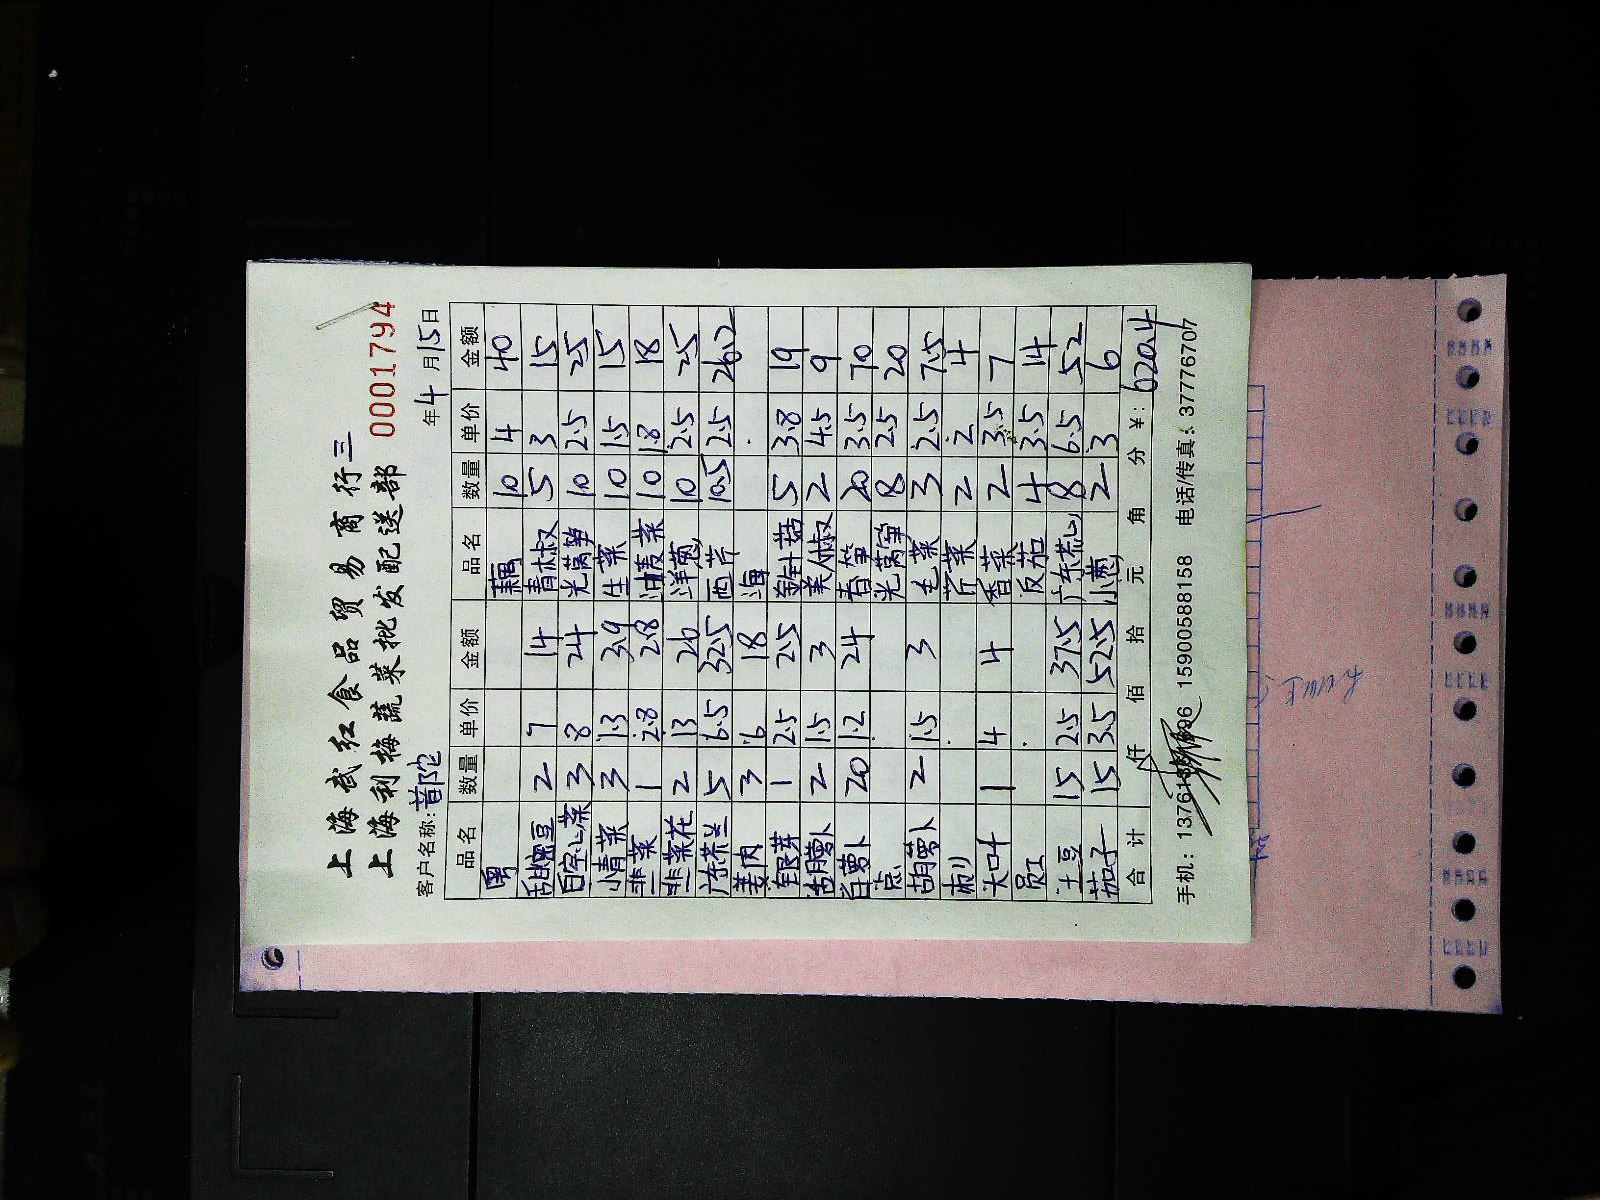 上海武红食品贸易商行 三
上海利梅蔬菜批发配送部 0001794
客户名称: 普陀 年 4 月 15 日
品名 数量 单价 金额 品名 数量 单价 金额
粤 藕 10 4 40
甜豌豆 2 7 14 青椒 5 3 15
3 8 24 光莴笋 10 2.5 25
小青菜 3 1.3 3.9 生菜 10 1.5 15
韭菜 1 2.8 2.8 油麦菜 10 1.8 18
韭菜花 2 13 26 洋葱 10 2.5 25
广东芥兰 5 6.5 32.5 西芹 10.5 2.5 26.2
姜肉 3 6 18 海
银芽 1 2.5 2.5 金针菇 5 3.8 19
2 1.5 3 美人椒 2 4.5 9
白萝卜 20 1.2 24 春笋 20 3.5 70
点 光莴笋 8 2.5 20
胡萝卜 2 1.5 3 毛菜 3 2.5 7.5
芹菜 2 2 4
1 4 4 香菜 2 3.5 7
员工 反茄 4 3.5 14
土豆 15 2.5 37.5 广东菜心 8 6.5 52
茄子 15 3.5 52.5 小葱 2 3 6
合计 仟 佰 拾 元 角 分 ¥: 620.4
手机: 15900588158 电话/传真: 37776707